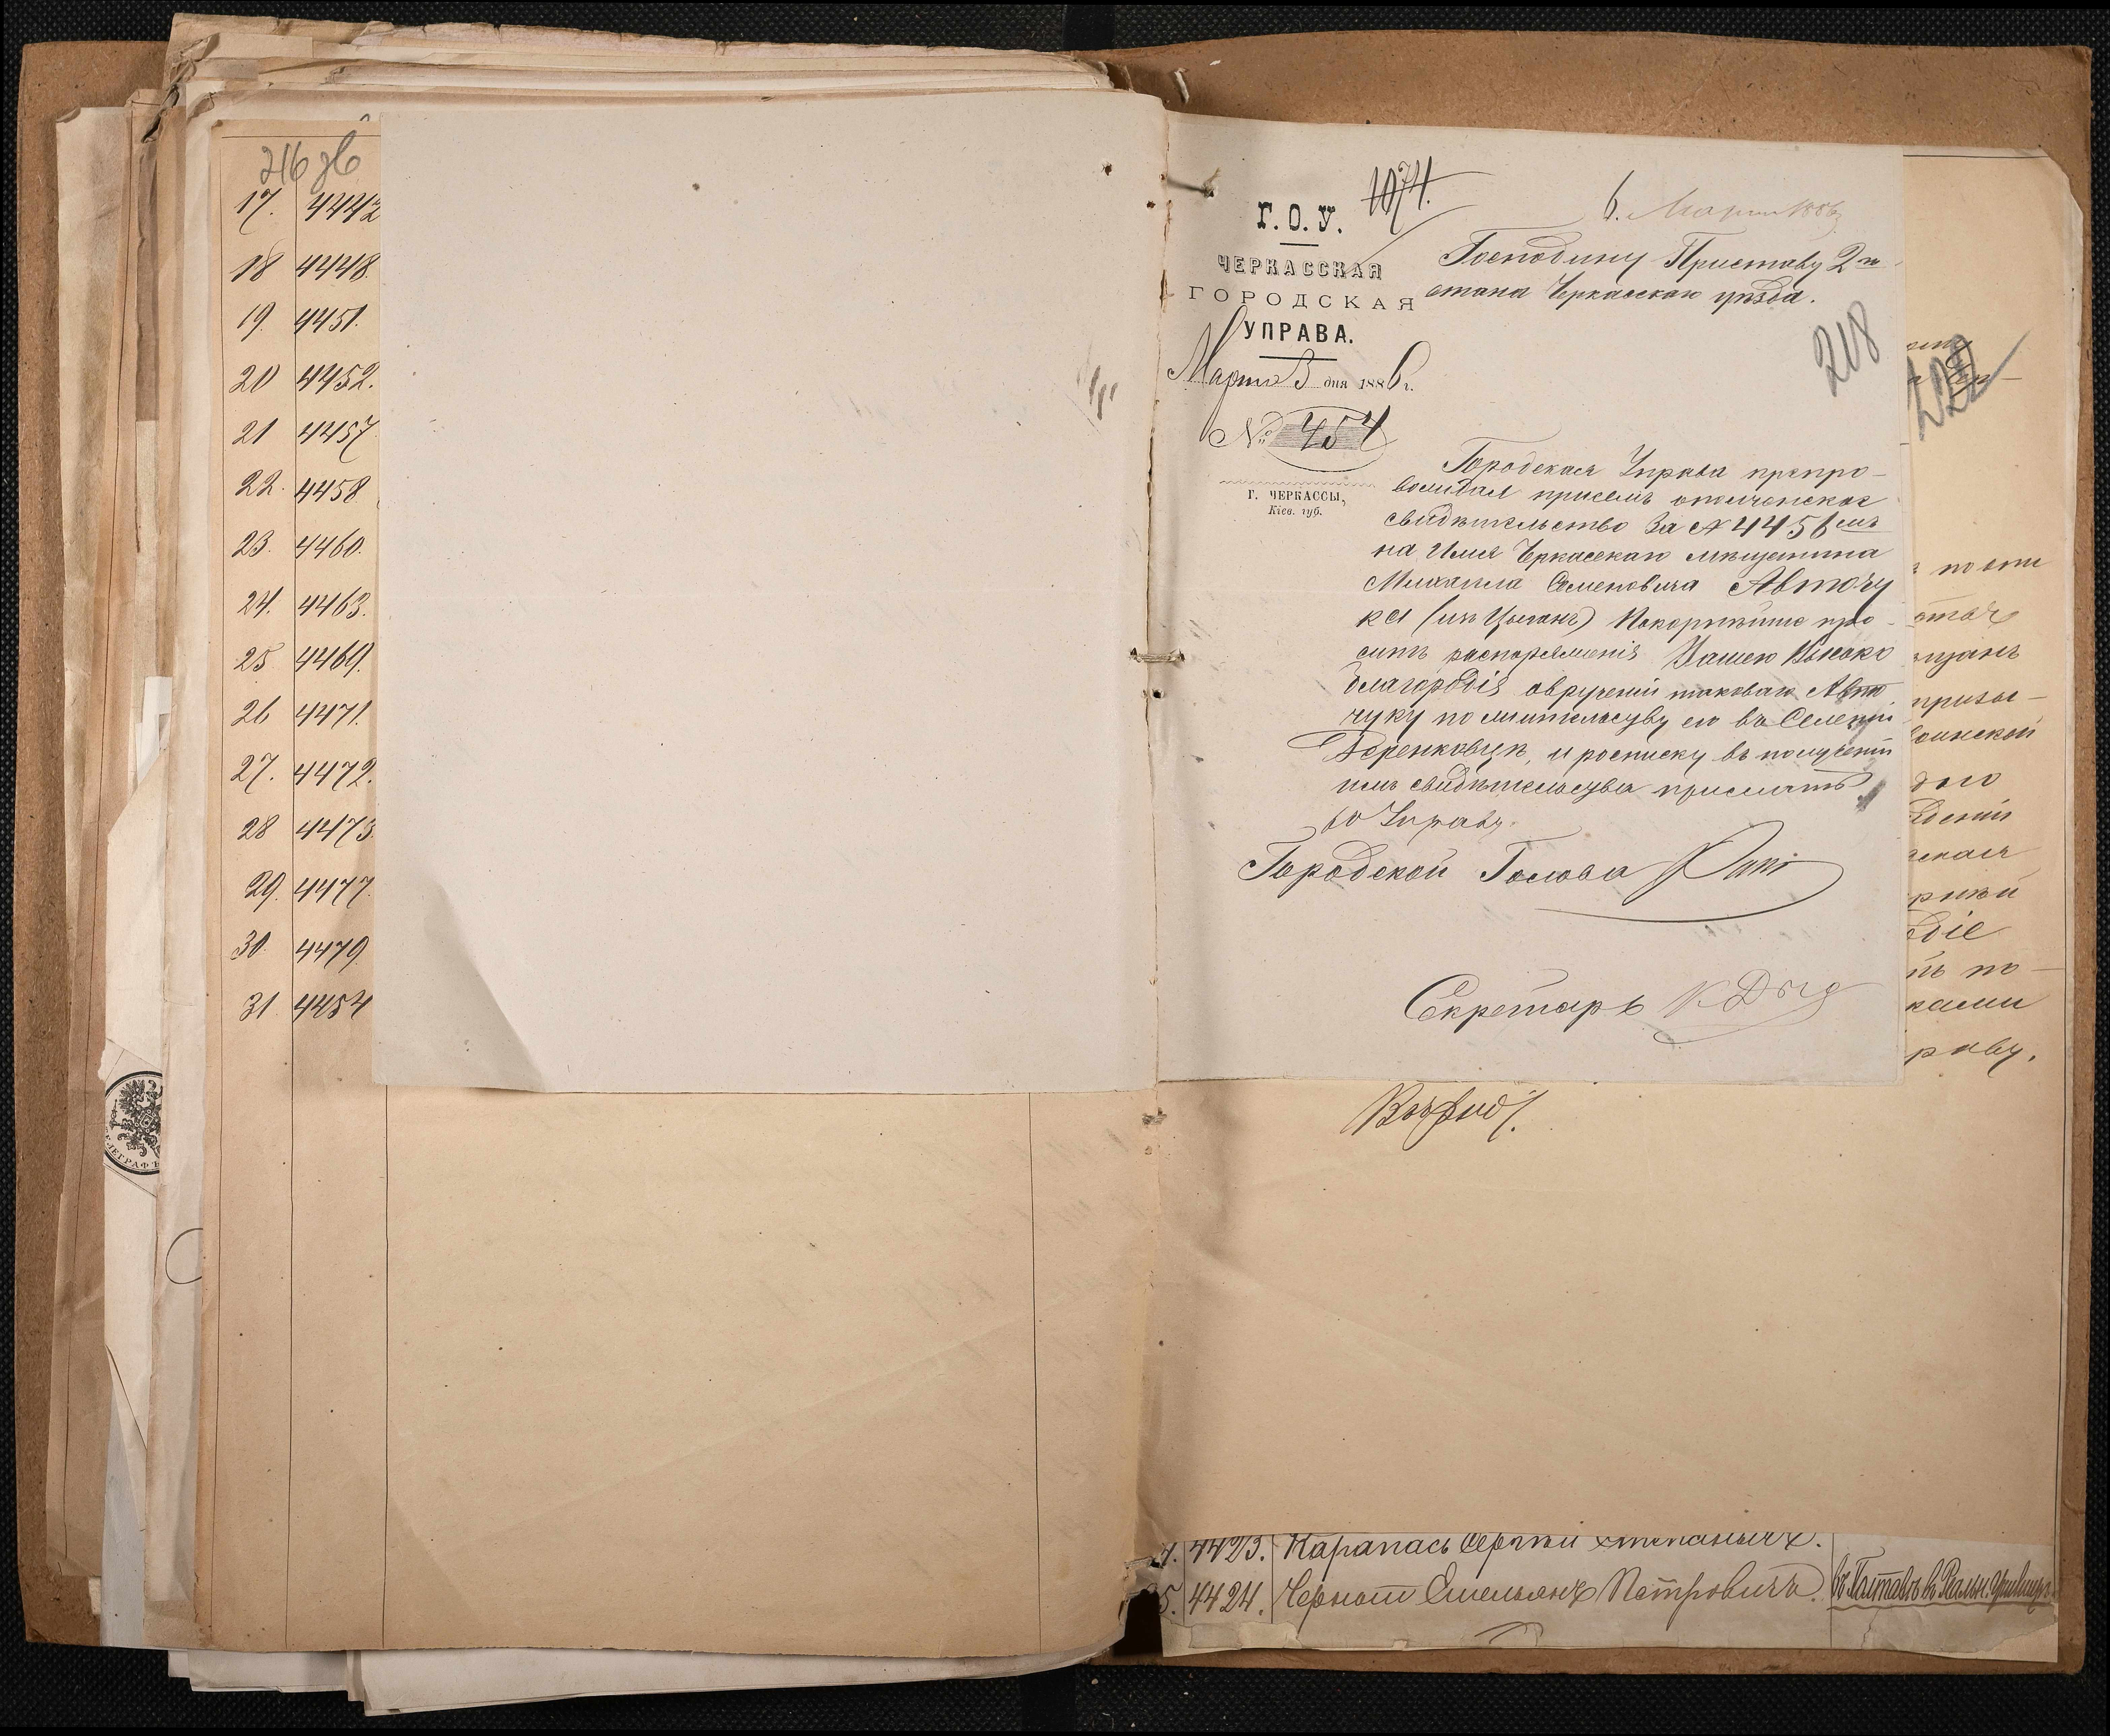 216 об
17. 4442
18 4448.
19. 4451.
20 4452.
21 4457
22. 4458
23. 4460.
24. 4463.
25 4469.
26 4471.
27. 4472.
28 4473
29. 4477.
30. 4479
31 4484
1074.
Г.О.У.
ЧЕРКАССКАЯ
ГОРОДСКАЯ
УПРАВА.
Марта 3 дня 1886 г.
№ 454
Г. ЧЕРКАССЫ,
Кіев. губ.
6. Марта 1886
Господину Приставу 2го
стана Черкасскаго уѣзда.
218
Городская Управа препро-
вождая присемъ ополченское
свидѣтельство за № 4456мъ
на имя Черкасскаго мѣщанина
Михаила Семеновича Авточу
ка (изъ Цыганъ) Покорнѣйше про-
ситъ распоряженія Вашего Высоко
благородія овручении таковаго Авто
чуку по жительству его въ Селеніи
и росписку въ получении
имъ свидѣтельства прислать
во Управу.
Городской Голова
Секретарь
222
по эти
призы-
воинской
одіе
по-
ками
раву.
4423. Карапась Сергѣй
4424. Черном Емельянъ Петровичъ. въ Полтавѣ в Реальн. Училищѣ